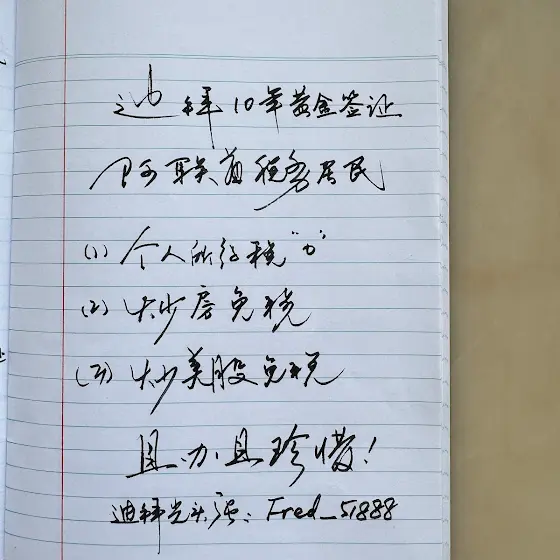 迪拜10年黄金签证
阿联酋税务居民
(1) 个人所得税"0"
(2) 炒房免税
(3) 炒美股免税
且办且珍惜!
迪拜光头强: Fred_51888